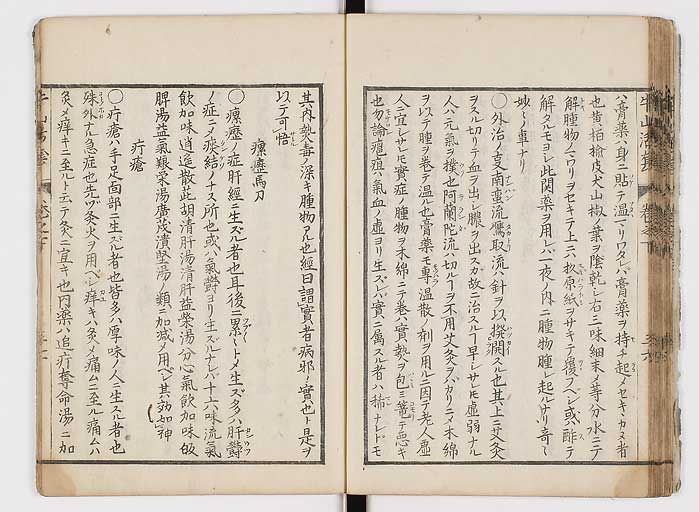 ハ膏藥ハ身ニ貼テ温マリワタレバ膏藥ヲ持チ起ノセキキカヌ者
也黄柏楡皮犬山椒ノ葉ヲ陰乾シ右三味細末ノ等分水ニテ
解腫物ノマワリヲセキテ上ニハ杦原紙ヲサキテ覆フベシ或ハ酢テ
解タルモヨシ此関藥ヲ用レバ一夜ノ内ニ腫物腫レ起ルナリ奇々
妙々ノ事ナリ
〇外治ノ夏南蛮流鷹取流ハ針ヲ以撥開スル也其上ニ艾灸
ヲスル切リテ血ヲ出シ膿ヲ出スガ故ニ治スルフ早シサレモ虚弱ナル
人ハ元氣ヲ撲也阿蘭陀流ハ切ルヲ不用艾灸ヲバカリニメ木綿
ヲ以テ腫ヲ巻テ温ル也膏藥モ專温散ノ剤ヲ用ル因テ老人虚
人ニ宜レサレモ實症ノ腫物ヲ木綿ニテ巻バ實熱ヲ包ミ篭テ悪キ
也勿論癰疽ハ氣血ノ虚ヨリ生ズレバ實ニ属スル者ハ稀ナレドモ
其内熱毒ノ深キ腫物アル也經曰謂實者病邪ノ實也ト是ヲ
以テ可悟
瘰癧馬刀
〇瘰癧ノ症肝經ニ生ズル者也耳後ニ累々トメ生ズ多ハ肝鬱
ノ症ニメ痰結ノナス所也或ハ氣鬱ヨリ生ズルナレバ十六味流氣
飲加味逍遥散柴胡清肝湯清肝益榮湯分心氣飲加味皈
脾湯益氣養栄湯廣茂潰堅湯ノ類ニ加減ノ用ベシ其効如神
疔瘡
〇疔瘡ハ手足面部ニ生ズル者也皆多ハ厚味ノ人ニ生スル者也
殊外ナル急症也先ヅ灸火ヲ用ベシ痒キハ灸ノ痛ムニ至ル痛ムハ
灸メ痒キニ至ルト云テ灸ニ宜キ也内藥ハ追疔奪命湯ニ加